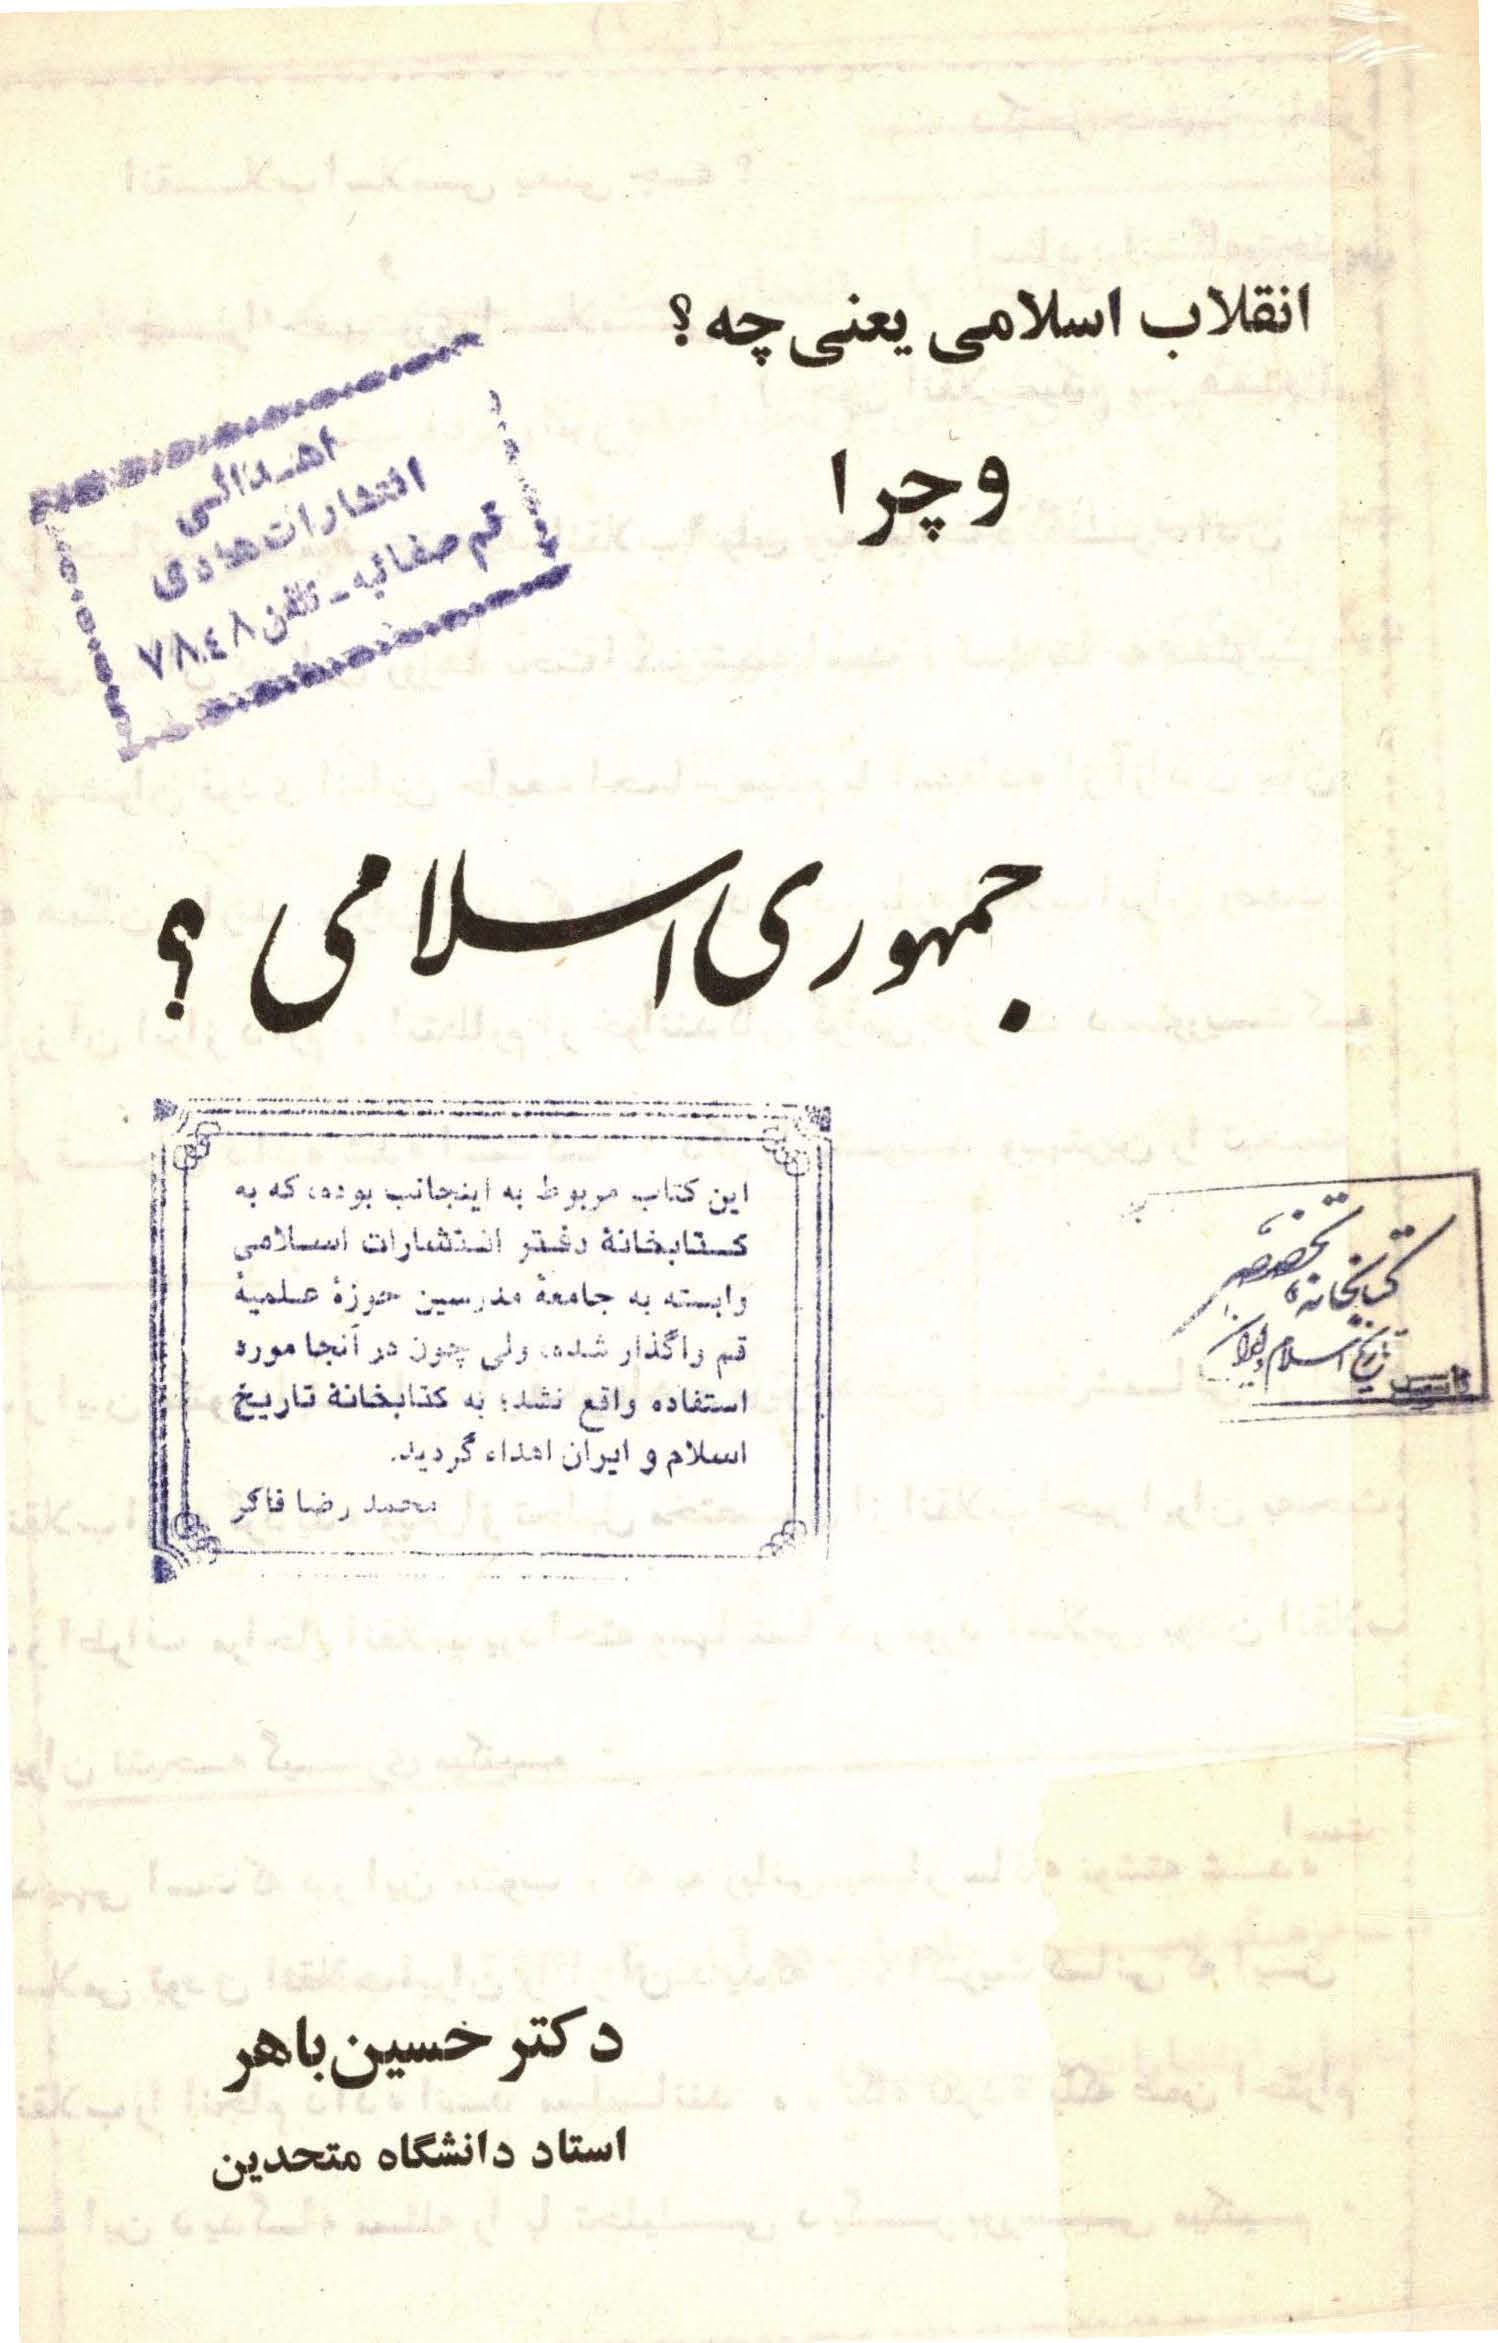 انقلاب اسلامی یعنی چه؟
وچرا
اهدائی
انتشارات هادی
قم صفائیه - تلفن ۷۸۰۴۸
جمهوری اسلامی؟
این کتاب مربوط به اینجانب بوده، که به
کتابخانهٔ دفتر انتشارات اسلامی
وابسته به جامعهٔ مدرسین حوزهٔ علمیهٔ
قم واگذار شده، ولی چون در آنجا مورد
استفاده واقع نشد؛ به کتابخانهٔ تاریخ
اسلام و ایران اهداء گردید.
محمد رضا فاکر
کتابخانه تخصصی
تاریخ اسلام و ایران
دکتر حسین باهر
استاد دانشگاه متحدین